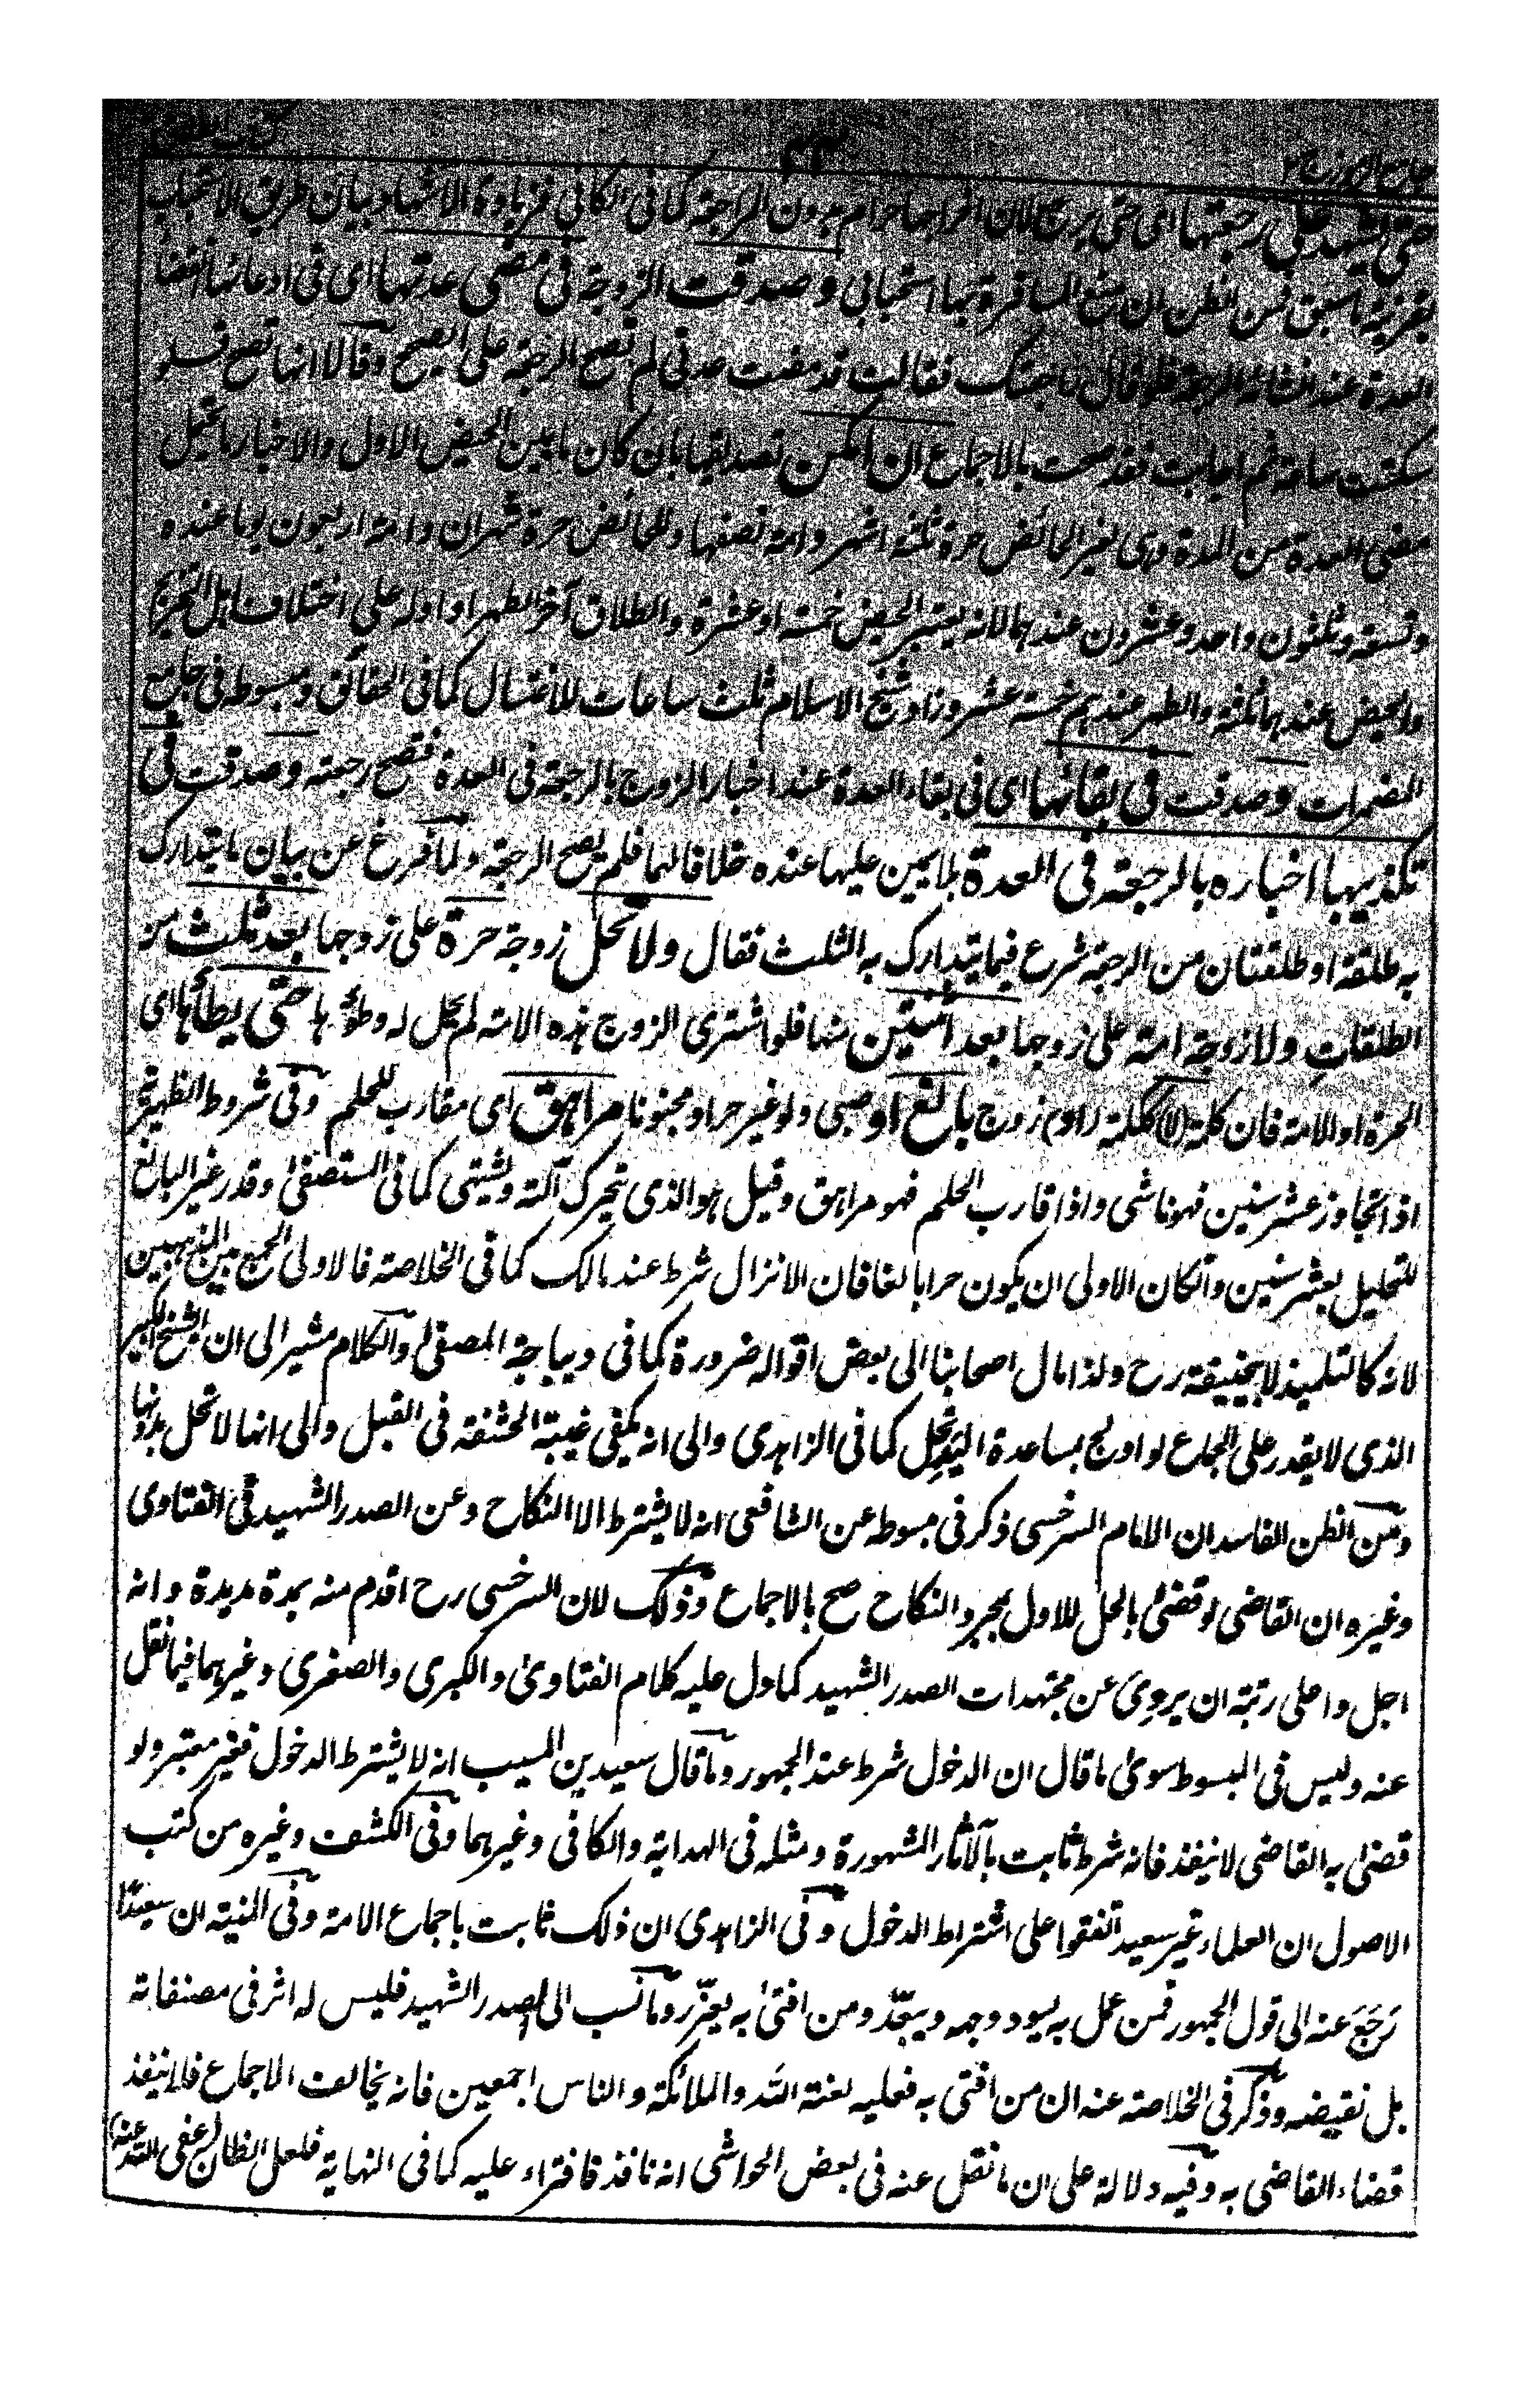 جامع الرموز ج ٢
حتى يشهد على رجعتها اى حتى يرجع لان اخراجها حرام بدون المراجعة كما فى الكافى فزيادة الاشهاد بيان طريق الاستحباب
بقرينة ما سبق فمن الظن ان منع المسافرة بها استحبابى وصدقت الزوجة فى مضى عدتها اى فى ادعائها انقضاء
العدة عند انشائه الرجعة فلو قال راجعتك فقالت قد مضت عدتى لم تصح الرجعة على الصحيح وقالا انها تصح فلو
سكتت ساعة ثم اجابت فقد صحت بالاجماع ان امكن تصديقها بان كان ما بين الحيض الاول والاخبار ما يحتمل
مضى العدة من المدة وهى لغير الحائض حرة ثلثة اشهر وامة نصفها وللحائض حرة شهران وامة اربعون يوما عنده
وتسعة وثلثون واحد وعشرون عندهما لانه يعتبر الحيض خمسة او عشرة والطلاق آخر الطهر او اوله على اختلاف اهل التخريج
والحيض عندهما ثلثة والطهر عندهم خمسة عشر وزاد شيخ الاسلام ثلث ساعات للاغتسال كما فى الحقائق ومبسوطه فى جامع
المضمرات وصدقت فى بقائها اى فى بقاء العدة عند اخبار الزوج بالرجعة فى العدة فتصح رجعته وصدقت فى
تكذيبها اخباره بالرجعة فى العدة بلا يمين عليها عنده خلافا لهما فلم يصح الرجعة ولما فرغ عن بيان ما يتدارك
به طلقة او طلقتان من الرجعة شرع فيما يتدارك به الثلث فقال ولا تحل زوجة حرة على زوجها بعد ثلث من
الطلقات ولا زوجة امة على زوجها بعد اثنتين منها فلو اشترى الزوج هذه الامة لم يحل له وطؤها حتى يطأها اى
الحرة او الامة فان كلمة (لا) ككلمة (او) زوج بالغ او صبى ولو غير حر او مجنونا مراهق اى مقارب للحلم وفى شروط الظهيرية
اذا تجاوز عشر سنين فهو ناشى واذا قارب الحلم فهو مراهق وقيل هو الذى يتحرك آلته ويشتهى كما فى المستصفى وقدر غير البالغ
للتحليل بعشر سنين وان كان الاولى ان يكون حرا بالغا فان الانزال شرط عند مالك كما فى الخلاصة فالاولى الجمع بين المذهبين
لانه كالتلميذ لابى حنيفة رح ولذا مال اصحابنا الى بعض اقواله ضرورة كما فى ديباجة المصفى والكلام مشير الى ان الشيخ الكبير
الذى لا يقدر على الجماع لو اولج بمساعدة اليد يحل كما فى الزاهدى والى انه يكفى غيبة الحشفة فى القبل والى انها لا تحل بدونها
ومن الظن الفاسد ان الامام السرخسى ذكر فى مبسوطه عن الشافعى انه لا يشترط الا النكاح وعن الصدر الشهيد فى الفتاوى
وغيره ان القاضى لو قضى بالحل للاول بمجرد النكاح صح بالاجماع وذلك لان السرخسى رح اقدم منه بمدة مديدة وانه
اجل واعلى رتبة ان يروى عن مجتهدات الصدر الشهيد كما دل عليه كلام الفتاوى والكبرى والصغرى وغيرهما فيما نقل
عنه وليس فى المبسوط سوى ما قال ان الدخول شرط عند الجمهور وما قال سعيد بن المسيب انه لا يشترط الدخول فغير معتبر ولو
قضى به القاضى لا ينفذ فانه شرط ثابت بالآثار المشهورة ومثله فى الهداية والكافى وغيرهما وفى الكشف وغيره من كتب
الاصول ان العلماء غير سعيد اتفقوا على اشتراط الدخول وفى الزاهدى ان ذلك ثابت باجماع الامة وفى المنية ان سعيدًا
رَجَعَ عنه الى قول الجمهور فمن عمل به يسود وجهه ويبعّد ومن افتى به يعزّر وما نسب الى الصدر الشهيد فليس له اثر فى مصنفاته
بل نقيضه وذكر فى الخلاصة عنه ان من افتى به فعليه لعنة الله والملائكة والناس اجمعين فانه يخالف الاجماع فلا ينفذ
قضاء القاضى به وفيه دلالة على ان ما نقل عنه فى بعض الحواشى انه نافذ فافتراء عليه كما فى النهاية فلعل الظان (عفى الله عنه)